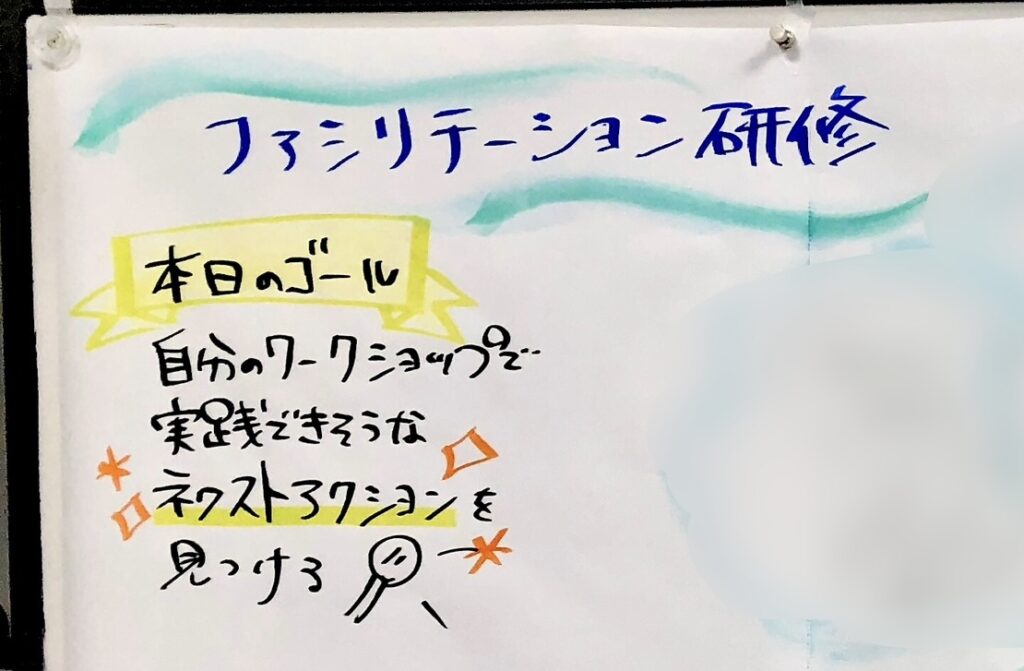 ファシリテーション研修
本日のゴール
自分のワークショップで
実践できそうな
ネクストアクションを
見つける